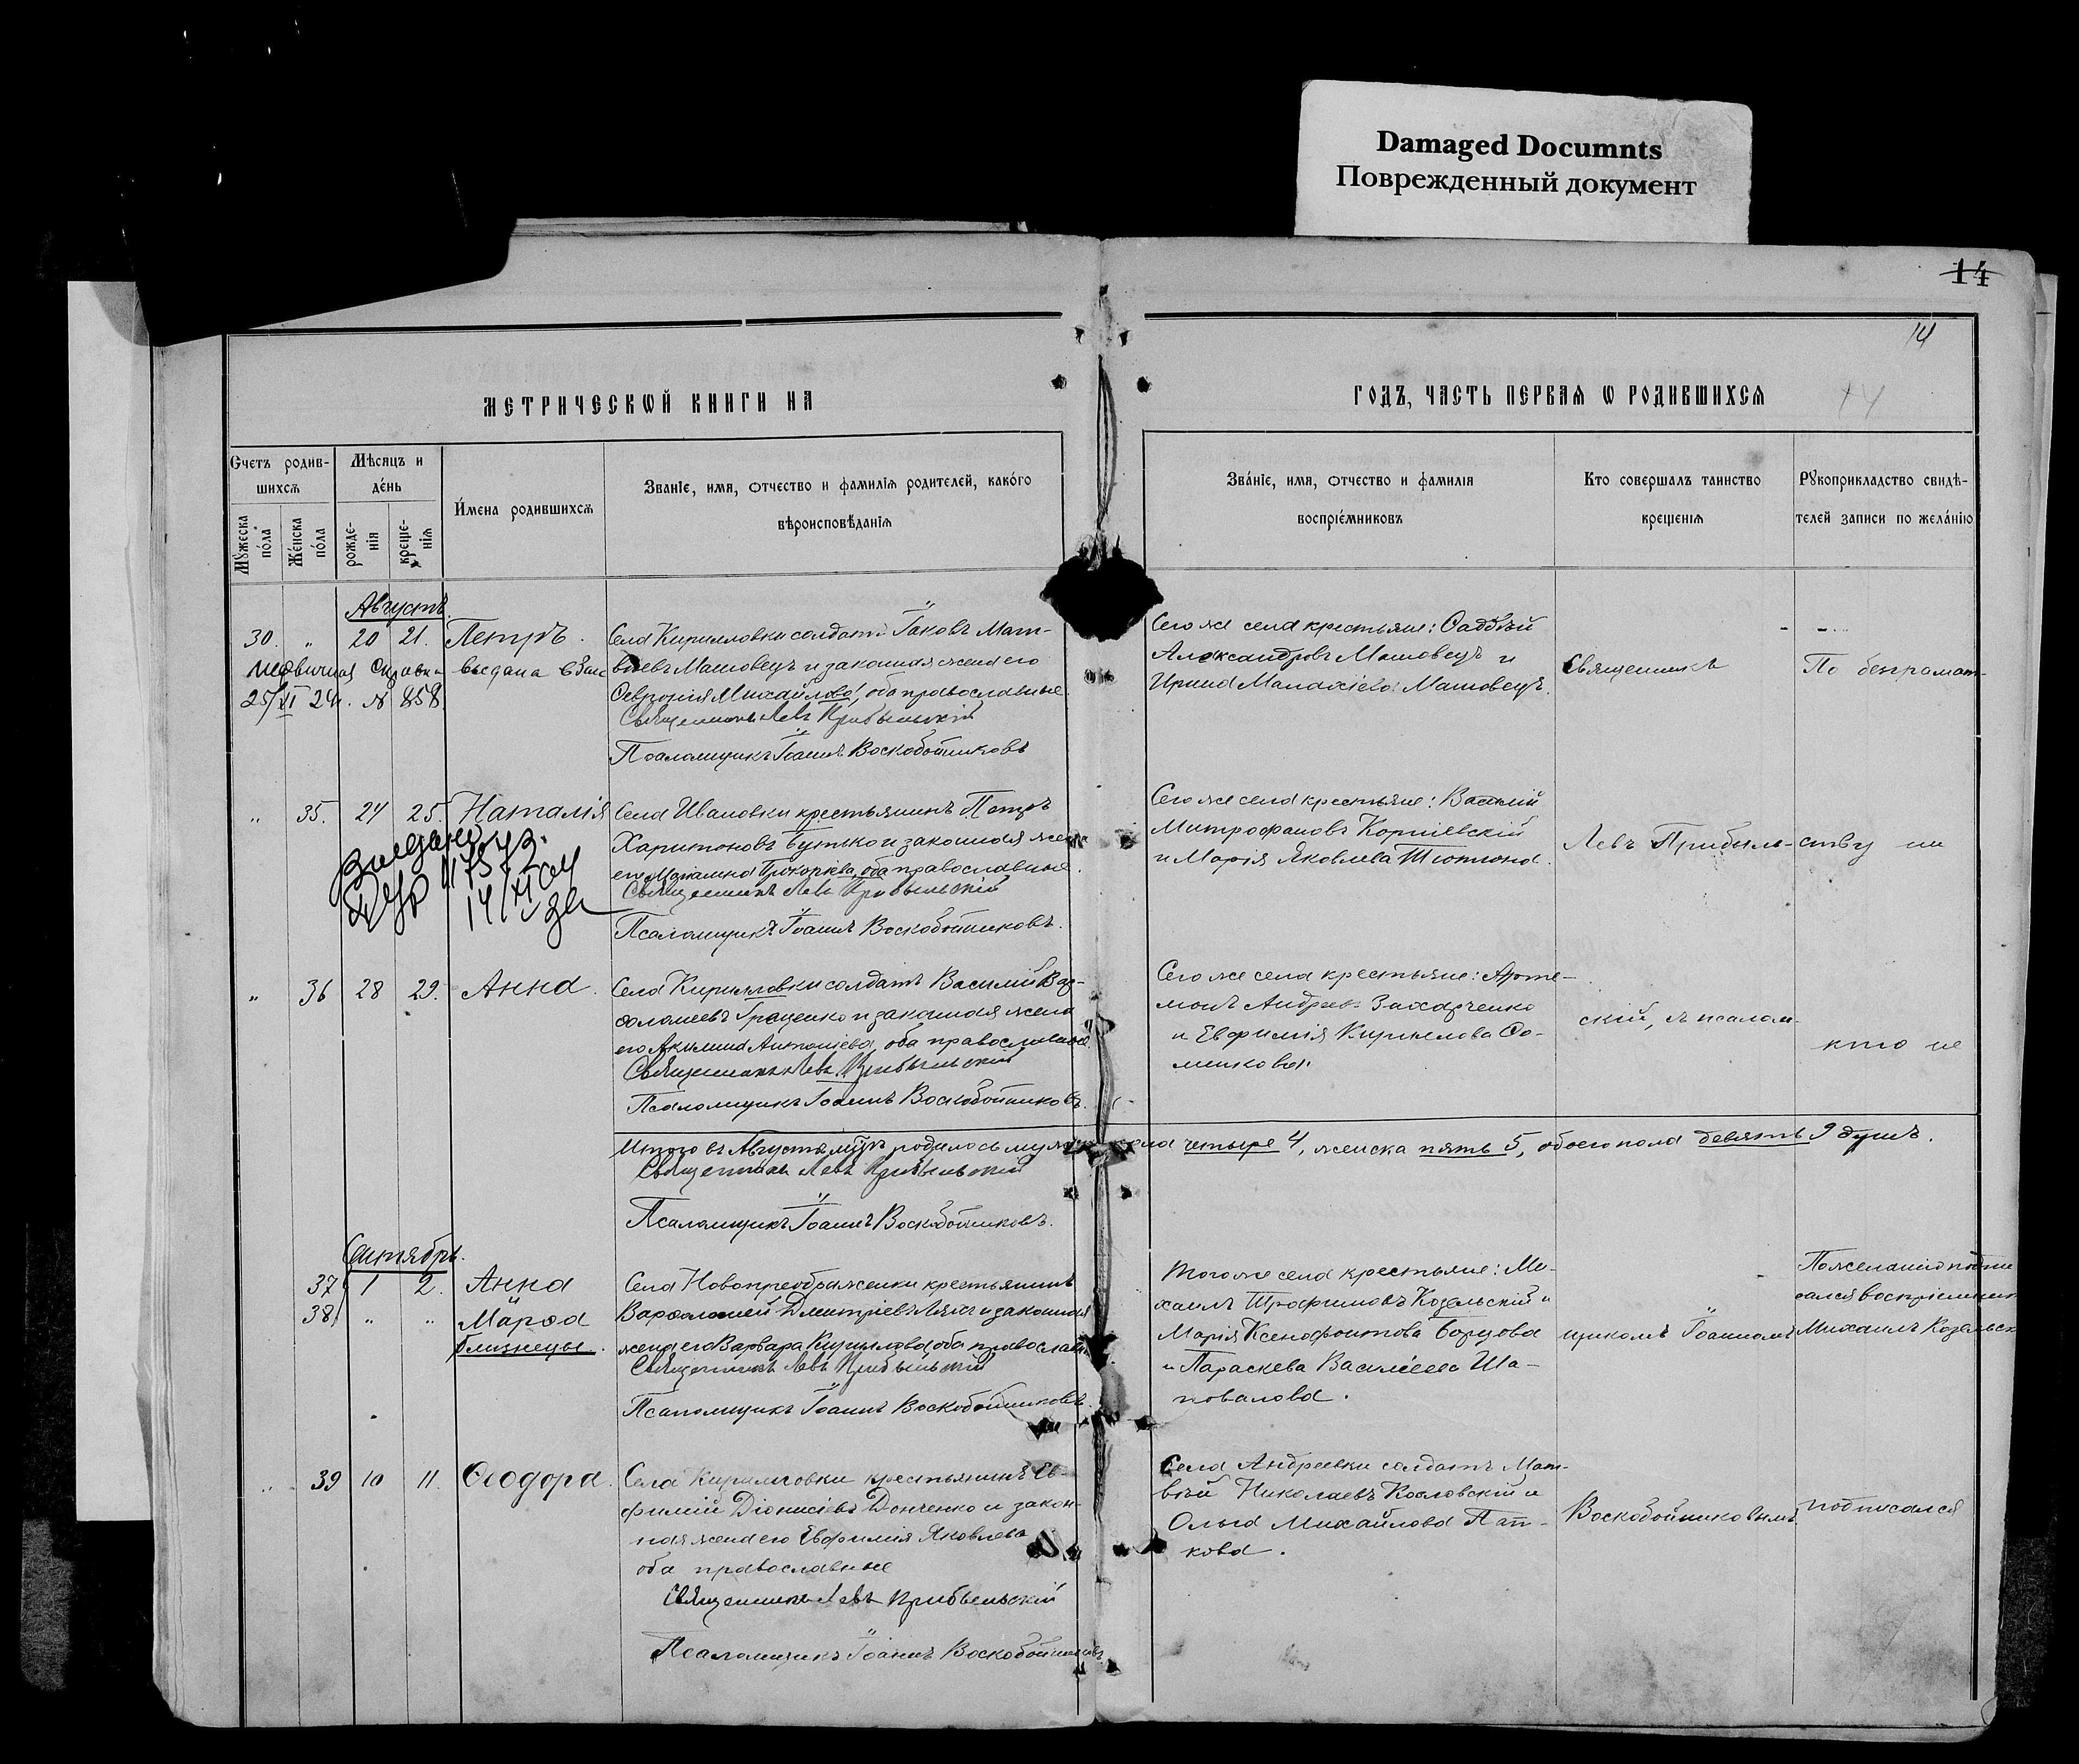 Damaged Documnts
Поврежденный документ
14
14
МЕТРИЧЕСКОЙ КНИГИ НА
ГОДЪ, ЧАСТЬ ПЕРВАЯ Ѡ РОДИВШИХСЯ
Счетъ родив-
шихся
Мѣсяцъ и
де́нь
Мꙋжеска по́ла
Же́нска по́ла
рожде-
нія
креще-
нія
И́мена родившихся
Званіе, имя, ѻтчество и фамилія родителей, како́го
вѣроисповѣданія
Зва́ніе, имя, ѻтчество и фамилія
воспріе́мниковъ
Кто совершалъ таинство
крещенія
Рꙋкоприкладство свидѣ-
телей записи по жела́нію
Августъ.
30. " 20 21. Петръ.
Села Кирилловки солдатъ Іаковъ Мат-
вѣевъ Машовецъ и законная жена его
Михайлова, оба православные.
Священникъ Левъ Прибыльскій
Псаломщикъ Іоаннъ Воскобойниковъ
справка выдана
25/XI 24 г. № 858
Сего же села крестьяне: Фаддѣй
Александровъ Машовецъ и
Ирина Малахіева Машовецъ.
Священникъ
По безграмот-
" 35. 24 25. Наталія
Села Ивановки крестьянинъ Петръ
Харитоновъ Бутько и законная жена
его Прокопіева, оба православные.
Священникъ Левъ Прибыльскій
Псаломщикъ Іоаннъ Воскобойниковъ.
Сего же села крестьяне: Василій
Митрофановъ Корніевскій
и Марія Яковлева Тютюна.
Левъ Прибыль-
ству ни
" 36 28 29. Анна.
Села Кирилловки солдатъ Василій Вар-
ѳоломеевъ Гращенко и законная жена
его Акилина Антоніева, оба православные.
Священникъ Левъ Прибыльскій
Псаломщикъ Іоаннъ Воскобойниковъ.
Сего же села крестьяне: Арте-
монъ Андреевъ Захарченко
и Евфимія Кириллова Со-
минкова.
скій, съ псалом-
кто не
Итого въ Августѣ м-цѣ родилось мужеска пола четыре 4, женска пять 5, обоего пола девять 9 душъ.
Священникъ Левъ Прибыльскій
Псаломщикъ Іоаннъ Воскобойниковъ.
Сентябрь.
37 1 2. Анна
38 " " Марѳа
близнецы.
Села Новопреображенки крестьянинъ
Варѳоломей Дмитріевъ Ляхъ и законная
жена его Варвара Кириллова, оба православн.
Священникъ Левъ Прибыльскій
Псаломщикъ Іоаннъ Воскобойниковъ.
Того же села крестьяне: Ми-
хаилъ Трофимовъ Козельскій и
Марія Ксенофонтова Борцова
и Параскева Василіева Ша-
повалова.
щикомъ Іоанномъ
По желанію подпи
сался воспріемникъ
Михаилъ Козельск
" 39 10 11. Ѳеодора.
Села Кирилловки крестьянинъ Ев-
фимій Діонисіевъ Донченко и закон-
ная жена его Евфимія Яковлева
оба православные
Священникъ Левъ Прибыльскій
Псаломщикъ Іоаннъ Воскобойниковъ.
Села Андреевки солдатъ Мат-
вѣй Николаевъ Козловскій и
Ольга Михайлова Пап-
кова.
Воскобойниковымъ.
подписался